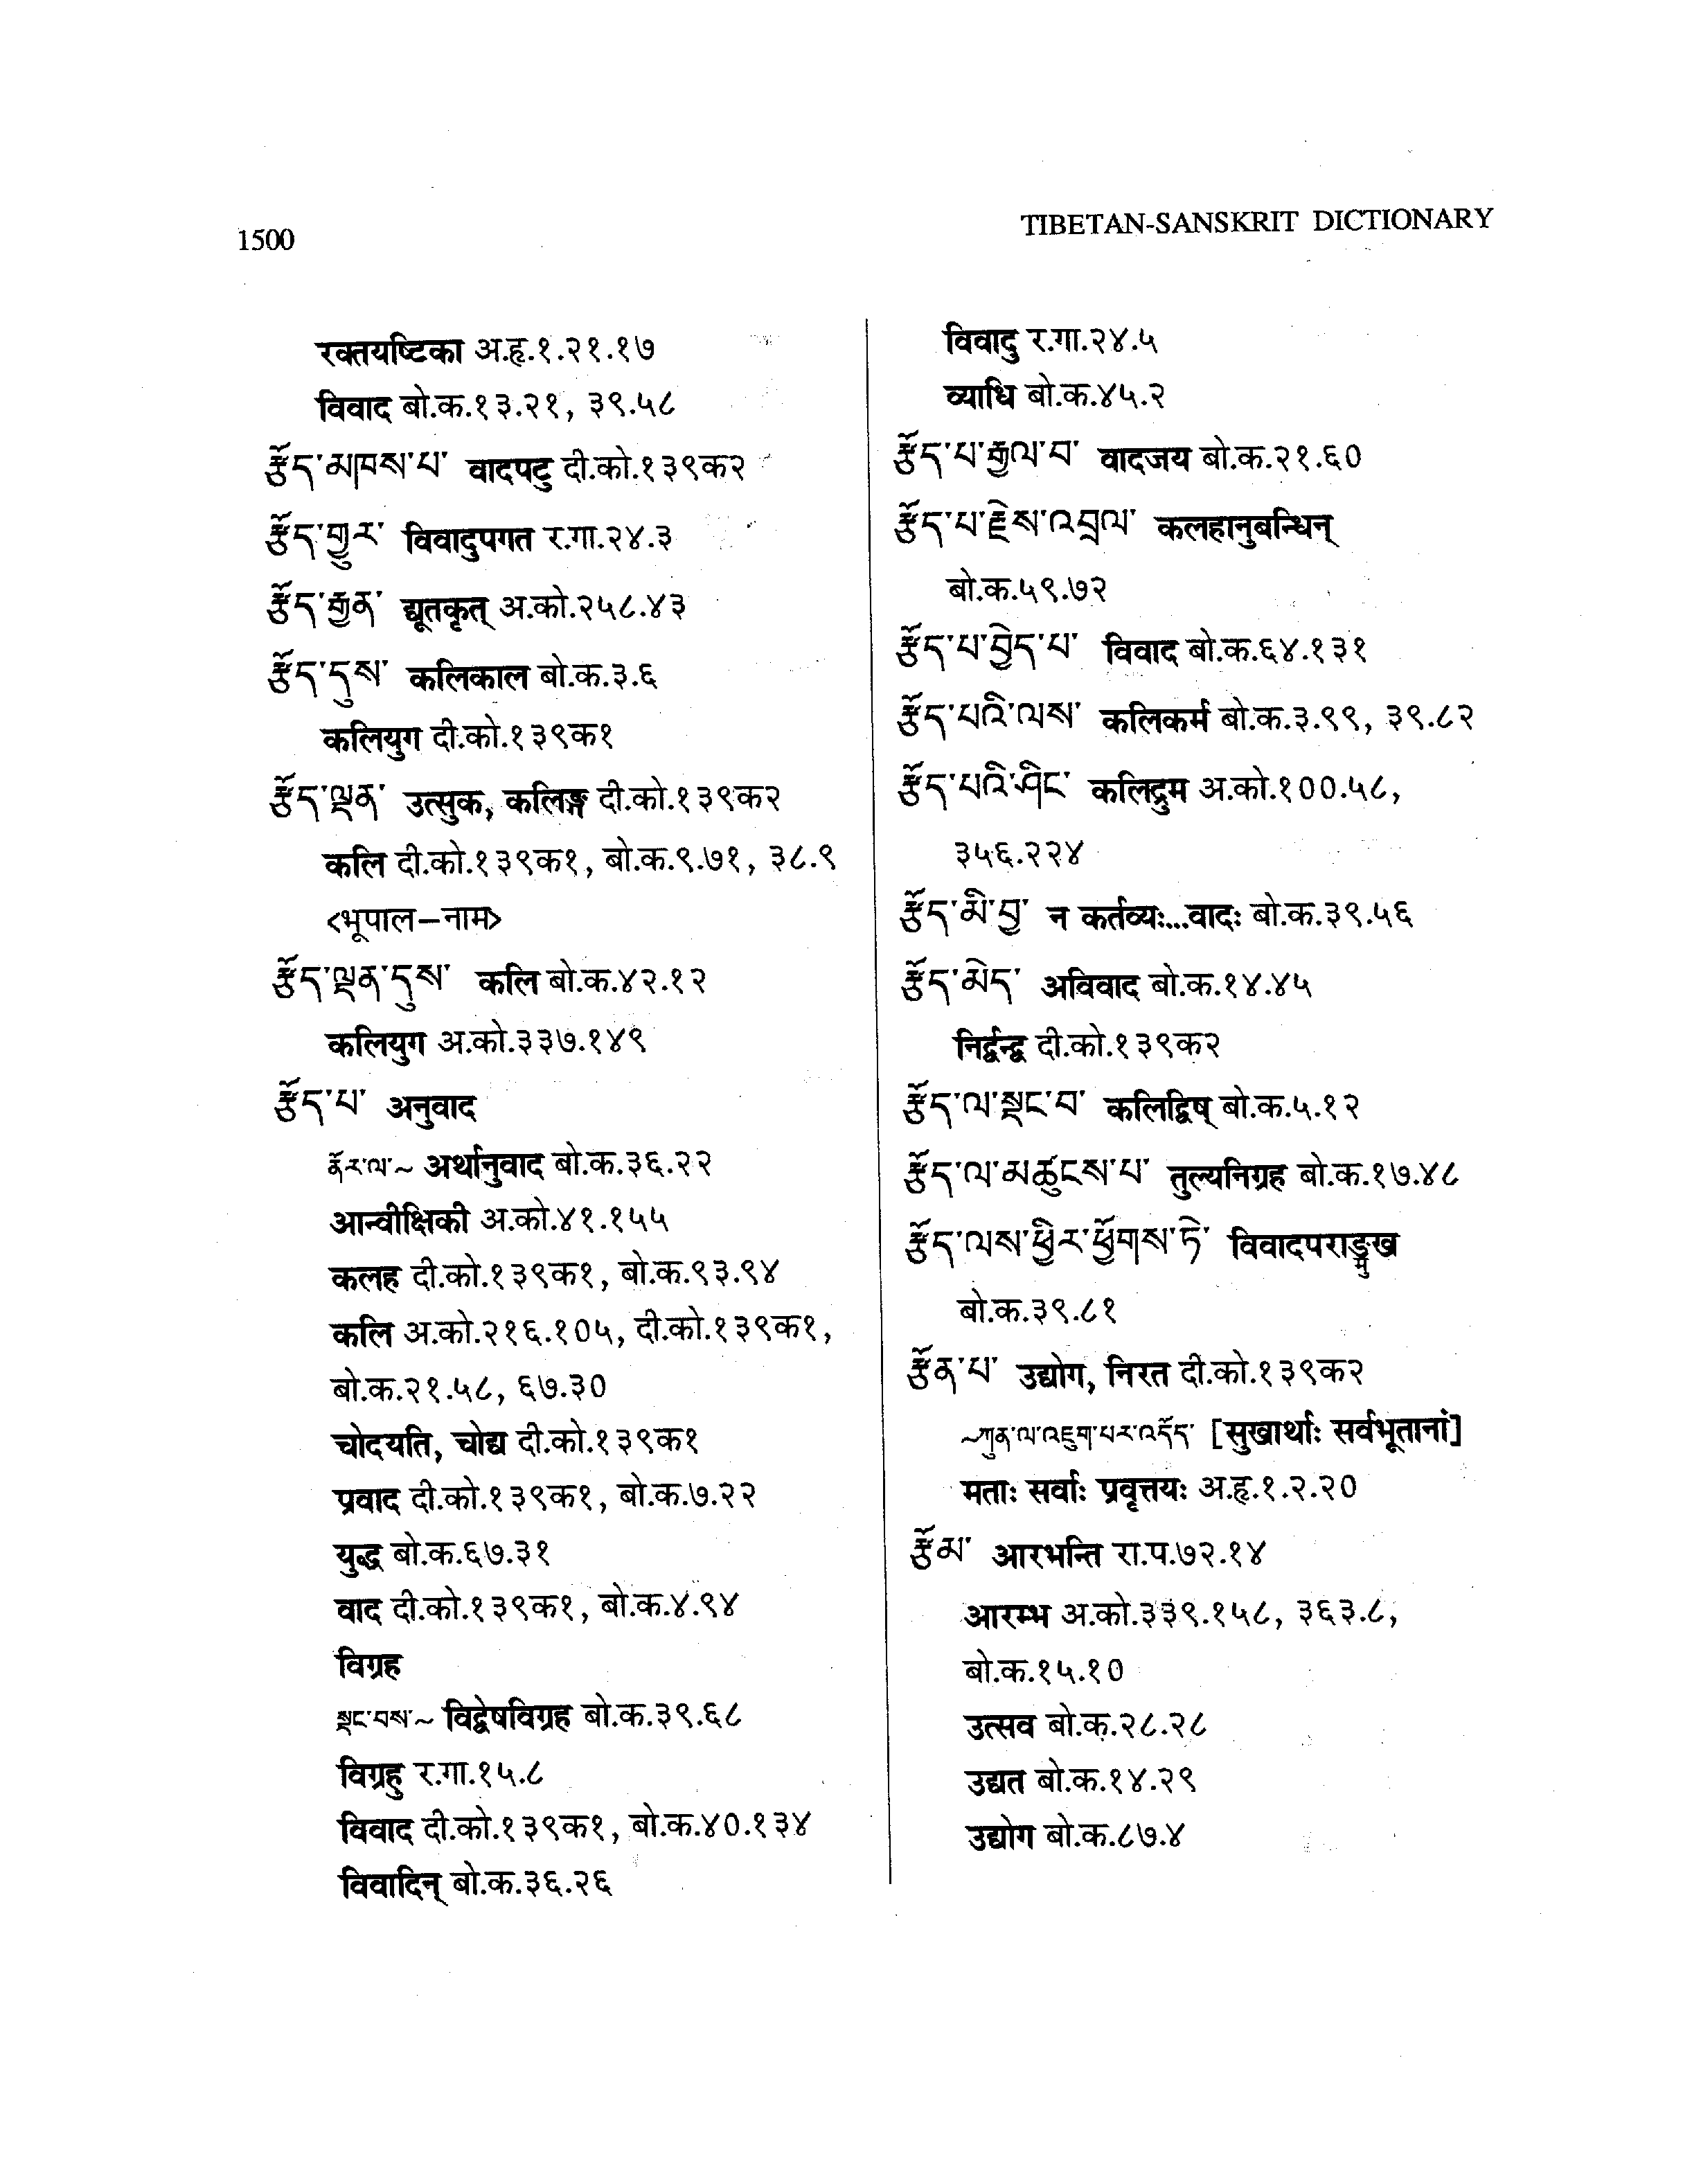 1500
TIBETAN-SANSKRIT DICTIONARY
रक्तयष्टिका अ.हृ.१.२१.१७
विवाद बो.क.१३.२१, ३९.५८
རྩོད་མཁས་པ་ वादपटु दी.को.१३९क२
རྩོད་གྱུར་ विवादुपगत र.गा.२४.३
རྩོད་རྒྱན་ द्यूतकृत् अ.को.२५८.४३
རྩོད་དུས་ कलिकाल बो.क.३.६
कलियुग दी.को.१३९क१
རྩོད་ལྡན་ उत्सुक, कलिङ्ग दी.को.१३९क२
कलि दी.को.१३९क१, बो.क.९.७१, ३८.९
<भूपाल–नाम>
རྩོད་ལྡན་དུས་ कलि बो.क.४२.१२
कलियुग अ.को.३३७.१४९
རྩོད་པ་ अनुवाद
ནོར་ལ་~ अर्थानुवाद बो.क.३६.२२
आन्वीक्षिकी अ.को.४१.१५५
कलह दी.को.१३९क१, बो.क.९३.९४
कलि अ.को.२१६.१०५, दी.को.१३९क१,
बो.क.२१.५८, ६७.३०
चोदयति, चोद्य दी.को.१३९क१
प्रवाद दी.को.१३९क१, बो.क.७.२२
युद्ध बो.क.६७.३१
वाद दी.को.१३९क१, बो.क.४.९४
विग्रह
སྡང་བས་~ विद्वेषविग्रह बो.क.३९.६८
विग्रहु र.गा.१५.८
विवाद दी.को.१३९क१, बो.क.४०.१३४
विवादिन् बो.क.३६.२६
विवादु र.गा.२४.५
व्याधि बो.क.४५.२
རྩོད་པ་རྒྱལ་བ་ वादजय बो.क.२१.६०
རྩོད་པ་རྗེས་འབྲལ་ कलहानुबन्धिन्
बो.क.५९.७२
རྩོད་པ་བྱེད་པ་ विवाद बो.क.६४.१३१
རྩོད་པའི་ལས་ कलिकर्म बो.क.३.९९, ३९.८२
རྩོད་པའི་ཤིང་ कलिद्रुम अ.को.१००.५८,
३५६.२२४
རྩོད་མི་བྱ་ न कर्तव्यः...वादः बो.क.३९.५६
རྩོད་མེད་ अविवाद बो.क.१४.४५
निर्द्वन्द्व दी.को.१३९क२
རྩོད་ལ་སྡང་བ་ कलिद्विष् बो.क.५.१२
རྩོད་ལ་མཚུངས་པ་ तुल्यनिग्रह बो.क.१७.४८
རྩོད་ལས་ཕྱིར་ཕྱོགས་ཏེ་ विवादपराङ्मुख
बो.क.३९.८१
རྩོན་པ་ उद्योग, निरत दी.को.१३९क२
~ཀུན་ལ་འཇུག་པར་འདོད་ [सुखार्थाः सर्वभूतानां]
मताः सर्वाः प्रवृत्तयः अ.हृ.१.२.२०
རྩོམ་ आरभन्ति रा.प.७२.१४
आरम्भ अ.को.३३९.१५८, ३६३.८,
बो.क.१५.१०
उत्सव बो.क.२८.२८
उद्यत बो.क.१४.२९
उद्योग बो.क.८७.४